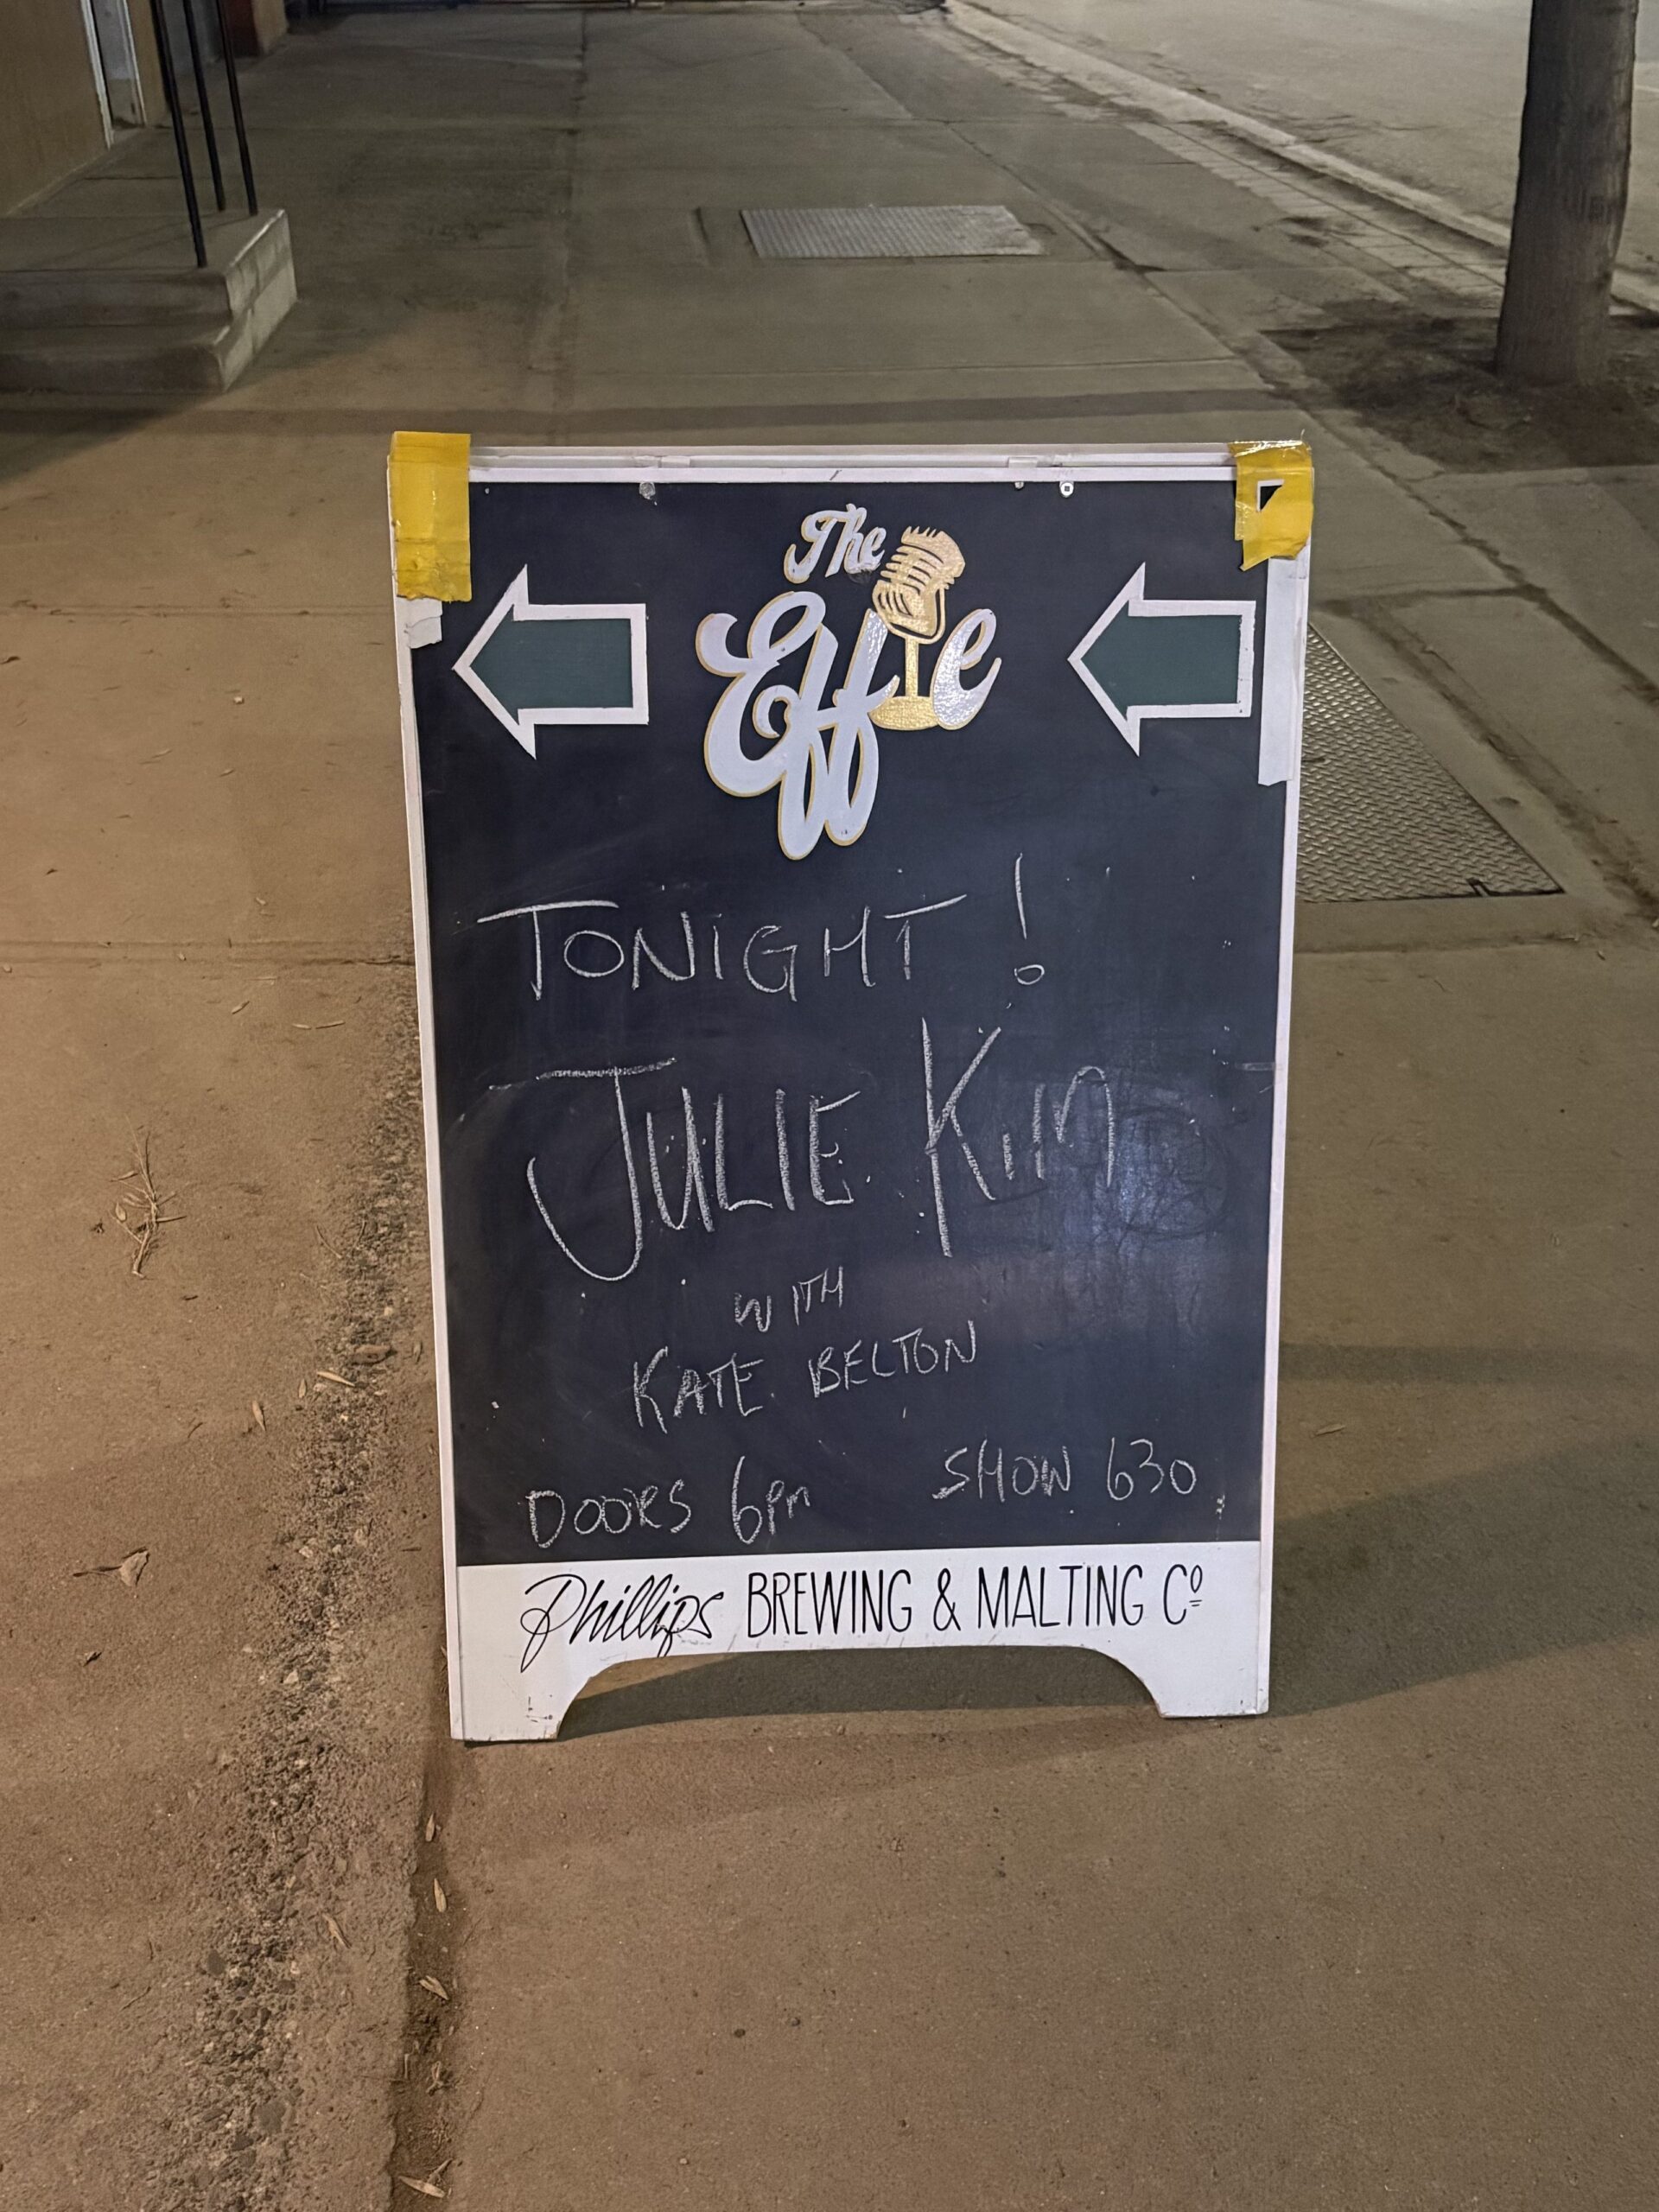 The
Effie
TONIGHT!
JULIE KIM
WITH
KATE BELTON
DOORS 6pm SHOW 630
Phillips BREWING & MALTING Cº